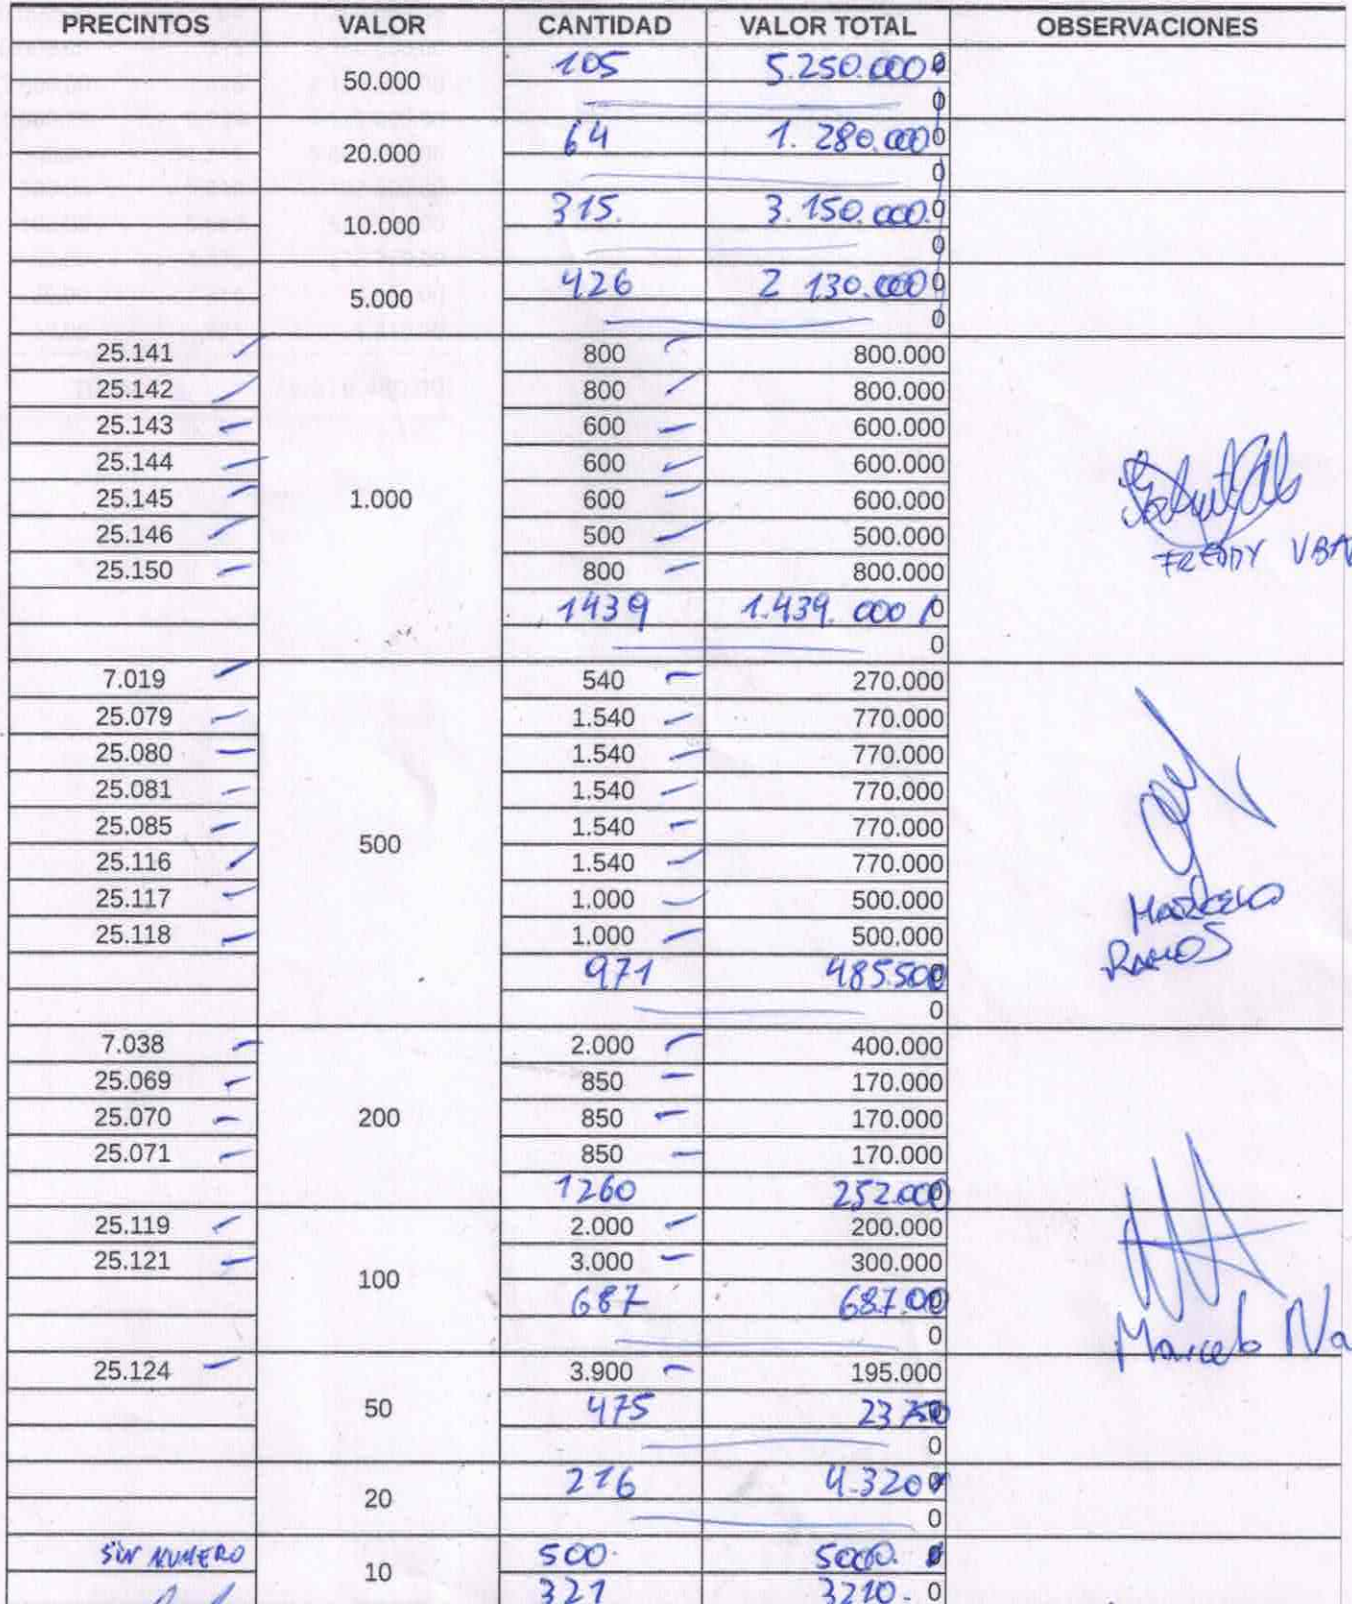 PRECINTOS VALOR CANTIDAD VALOR TOTAL OBSERVACIONES
50.000 105 5.250.000 0
0
20.000 64 1.280.000 0
0
10.000 315. 3.150.000. 0
0
5.000 426 2 130.000 0
0
25.141 800 800.000
25.142 800 800.000
25.143 600 600.000
25.144 600 600.000
25.145 1.000 600 600.000
25.146 500 500.000
25.150 800 800.000
FREDDY
1439 1.439.000 0
0
7.019 540 270.000
25.079 1.540 770.000
25.080 1.540 770.000
25.081 1.540 770.000
25.085 1.540 770.000
500
25.116 1.540 770.000
25.117 1.000 500.000
MARCELO
25.118 1.000 500.000
RAMOS
971 485.500
0
7.038 2.000 400.000
25.069 850 170.000
25.070 200 850 170.000
25.071 850 170.000
1260 252.000
25.119 2.000 200.000
25.121 3.000 300.000
100
687 687.00
0
Marcelo Na
25.124 3.900 195.000
50 475 23.750
0
20 216 4.320 0
0
SIN NUMERO 10 500. 5000. 0
321 3210. 0